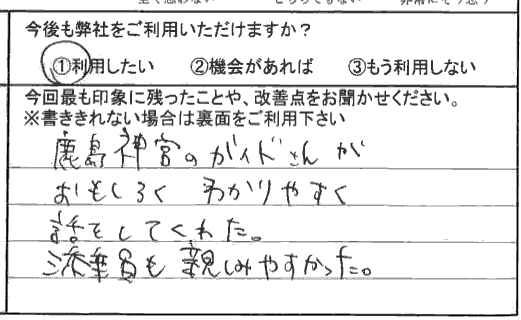 今後も弊社をご利用いただけますか？
①利用したい　②機会があれば　③もう利用しない
今回最も印象に残ったことや、改善点をお聞かせください。
※書ききれない場合は裏面をご利用下さい
鹿島神宮のガイドさんが
おもしろく わかりやすく
話をしてくれた。
添乗員も親しみやすかった。